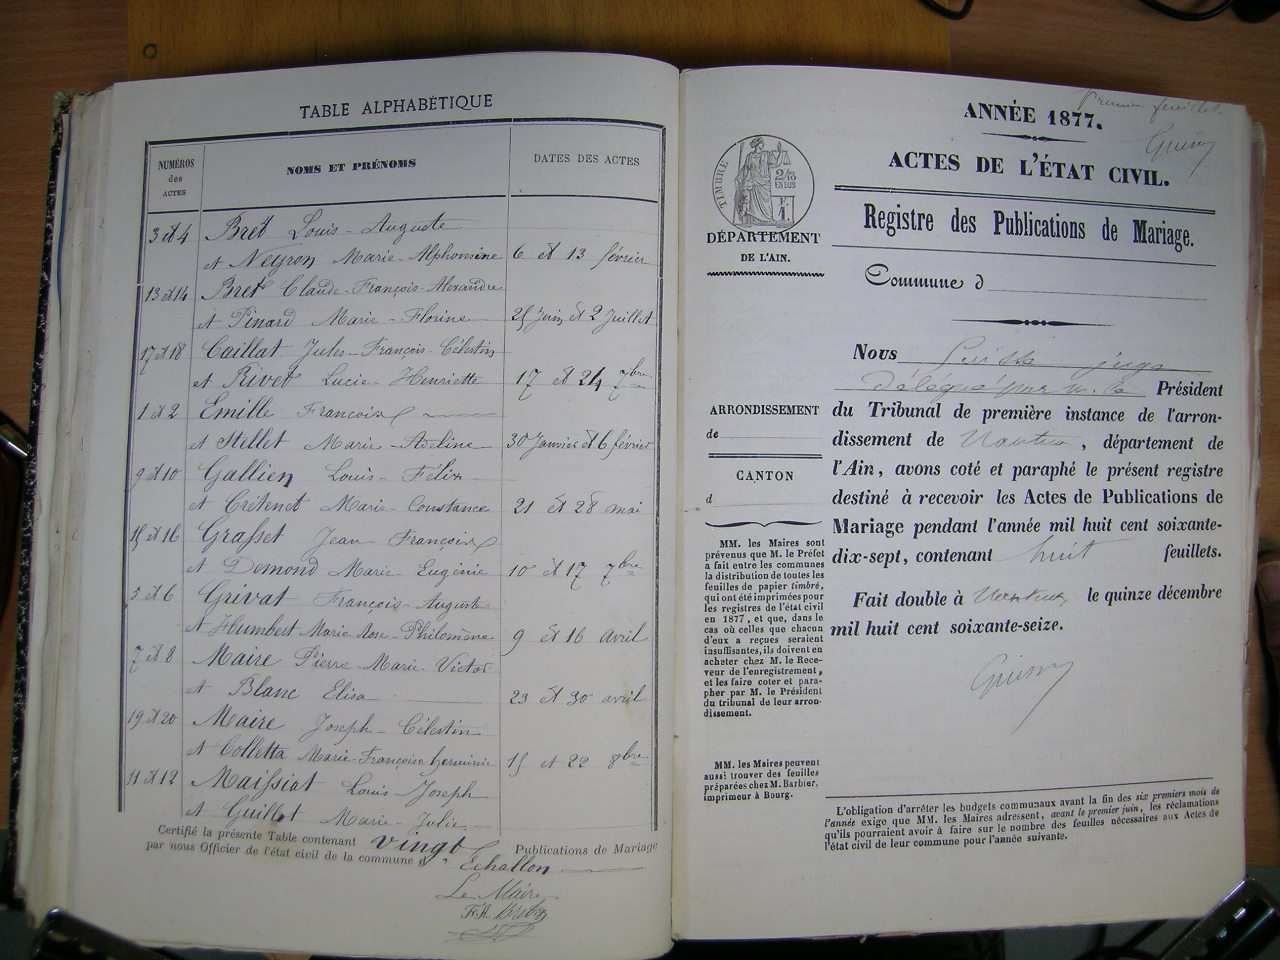 TABLE ALPHABÉTIQUE
NUMÉROS des ACTES
NOMS ET PRÉNOMS
DATES DES ACTES
3 et 4 Bret Louis-Auguste
et Neyron Marie-Alphonsine 6 et 13 février
13 et 14 Bret Claude-François-Alexandre
et Pinard Marie-Florine 25 Juin et 2 Juillet
17 et 18 Caillat Jules-François-Célestin
et Rivet Lucie-Henriette 17 et 24 7bre
1 et 2 Emille François
et Stellet Marie-Adeline 30 Janvier et 6 février
9 et 10 Gallien Louis-Félix
et Crétenet Marie-Constance 21 et 28 mai
15 et 16 Grasset Jean François
et Demond Marie-Eugénie 10 et 17 7bre
5 et 6 Grivat François-Auguste
et Humbert Marie Rose-Philomène 9 et 16 avril
7 et 8 Maire Pierre-Marie-Victor
et Blanc Elisa 23 et 30 avril
19 et 20 Maire Joseph-Célestin
et Colletta Marie-Françoise herminie 15 et 22 8bre
11 et 12 Maissiat Louis Joseph
et Guillot Marie-Julie
Certifié la présente Table contenant vingt Publications de Mariage
par nous Officier de l'état civil de la commune d'Echallon
Le Maire
premier feuillet
ANNÉE 1877.
ACTES DE L'ÉTAT CIVIL.
TIMBRE
2/10
EN SUS
F.
1.
DÉPARTEMENT
DE L'AIN.
Registre des Publications de Mariage.
Commune d
ARRONDISSEMENT
de
CANTON
d
MM. les Maires sont
prévenus que M. le Préfet
a fait entre les communes
la distribution de toutes les
feuilles de papier timbré,
qui ont été imprimées pour
les registres de l'état civil
en 1877, et que, dans le
cas où celles que chacun
d'eux a reçues seraient
insuffisantes, ils doivent en
acheter chez M. le Rece-
veur de l'enregistrement,
et les faire coter et para-
pher par M. le Président
du tribunal de leur arron-
dissement.
MM. les Maires peuvent
aussi trouver des feuilles
préparées chez M. Barbier,
imprimeur à Bourg.
Nous juge
délégué par M. le Président
du Tribunal de première instance de l'arron-
dissement de Nantua, département de
l'Ain, avons coté et paraphé le présent registre
destiné à recevoir les Actes de Publications de
Mariage pendant l'année mil huit cent soixante-
dix-sept, contenant huit feuillets.
Fait double à Nantua, le quinze décembre
mil huit cent soixante-seize.
L'obligation d'arrêter les budgets communaux avant la fin des six premiers mois de
l'année exige que MM. les Maires adressent, avant le premier juin, les réclamations
qu'ils pourraient avoir à faire sur le nombre des feuilles nécessaires aux Actes de
l'état civil de leur commune pour l'année suivante.